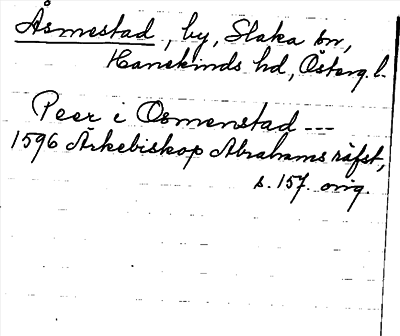 Åsmestad, by, Slaka sn,
Hanekinds hd, Österg. l.
Peer i Osmenstad ---
1596 Ärkebiskop Abrahams räfst,
s. 157. orig.